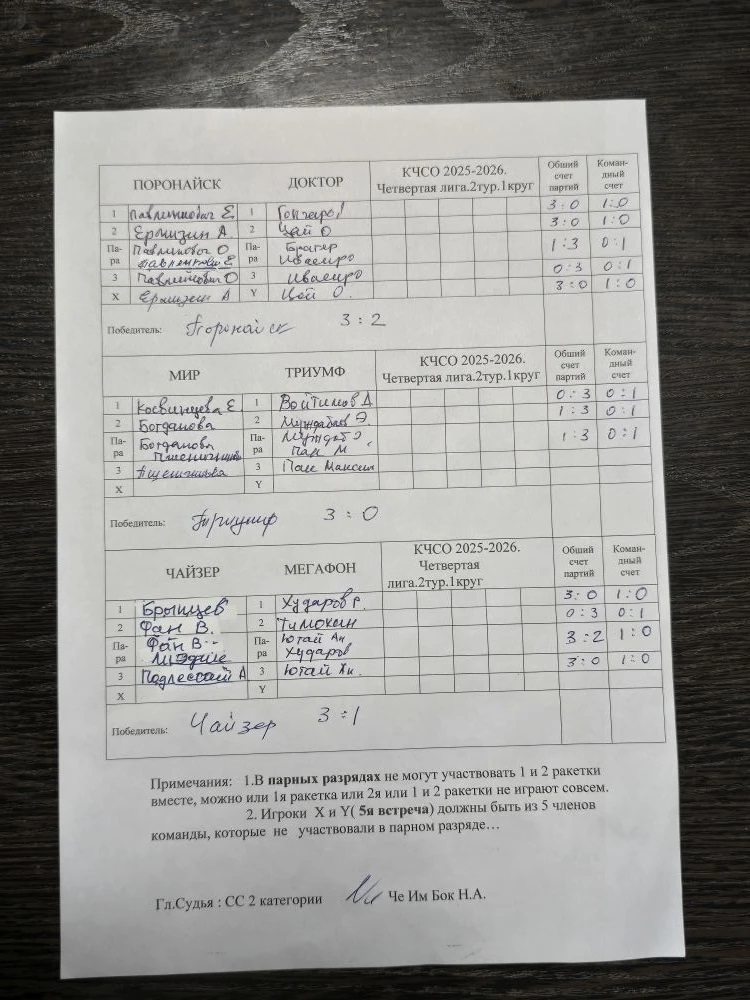 ПОРОНАЙСК ДОКТОР КЧСО 2025-2026. Четвертая лига.2тур.1круг Общий счет партий Коман-дный счет
1 Павлинкович Е. 1 Гончаров 3:0 1:0
2 Ермизин А. 2 Цай О 3:0 1:0
Па-ра Павлинкович О Па-ра Брагер 1:3 0:1
Е Ивасиро
3 О 3 Ивасиро 0:3 0:1
X Ермизин А Y Цой О. 3:0 1:0
Победитель: Поронайск 3:2
МИР ТРИУМФ КЧСО 2025-2026. Четвертая лига.2тур.1круг Общий счет партий Коман-дный счет
1 Косвинцева Е. 1 Войтимов Д 0:3 0:1
2 Богданова 2 Муждабаев Э. 1:3 0:1
Па-ра Богданова Па-ра Муждаб Э, 1:3 0:1
Пшеничникова Пак М
3 3 Пак Максим
X Y
Победитель: Триумф 3:0
ЧАЙЗЕР МЕГАФОН КЧСО 2025-2026. Четвертая лига.2тур.1круг Общий счет партий Коман-дный счет
1 Брынцев 1 Хударов Р. 3:0 1:0
2 Фан В. 2 Тимохин 0:3 0:1
Па-ра Фан В. Па-ра Ютай Ан 3:2 1:0
Хударов
3 Подлесный А 3 Ютай Хи. 3:0 1:0
X Y
Победитель: Чайзер 3:1
Примечания: 1.В парных разрядах не могут участвовать 1 и 2 ракетки
вместе, можно или 1я ракетка или 2я или 1 и 2 ракетки не играют совсем.
2. Игроки X и Y( 5я встреча) должны быть из 5 членов
команды, которые не участвовали в парном разряде…
Гл.Судья : СС 2 категории Че Им Бок Н.А.